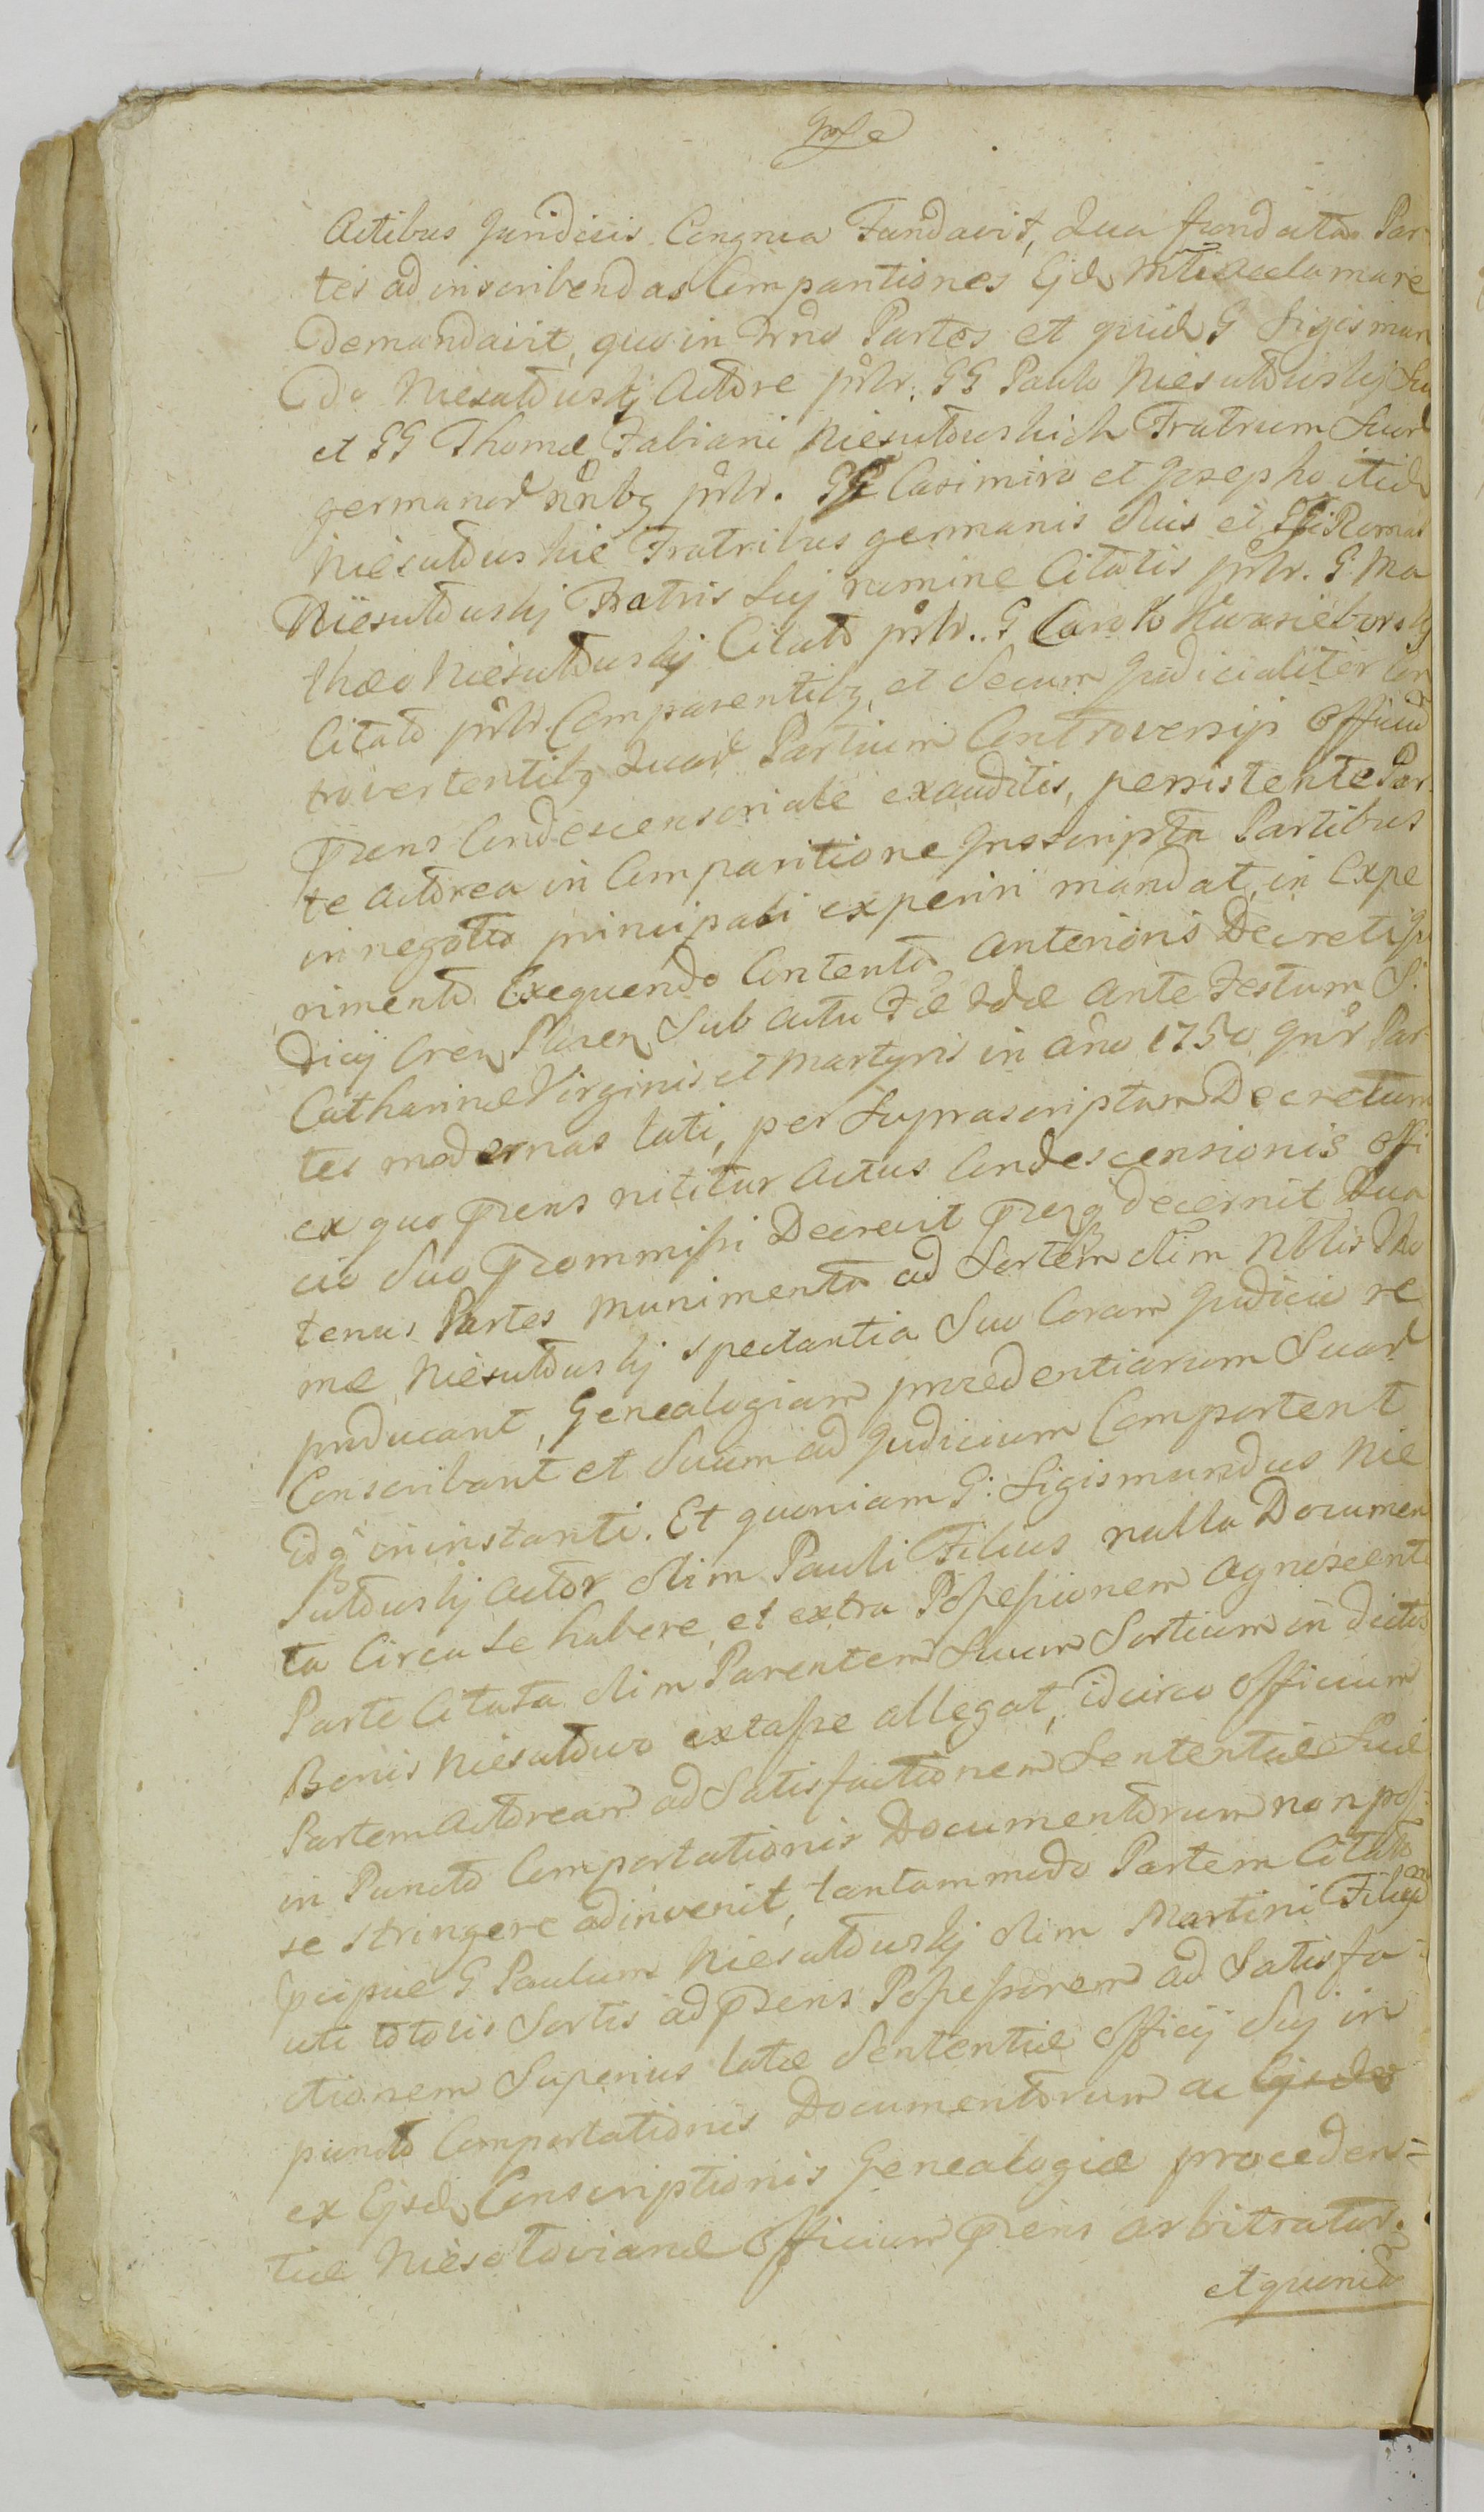 Actibus Juridicis Congrua Fundavit, Qua fundata Par-
tes ad inscribendas Comparitiones Ejd Mti acclamare
demandavit, quo in trno Partes et quid G Sigismun
do Niesułowskij Actore prlr. GG Paulo Niesułowskij Suo
et GG Thomæ Fabiani Niesułowskich Fratrum Suor
germanor nnbq prlr. GG Casimiro et Josepho itid
Niesułowskie Fratribus germanis Suis et Romas
Niesułowskij Fratris Suj nomine Citatis prlr. G. Ma
thæo Niesułowskij Citato prlr. G Carolo Kwasieborskij
Citato prlr Comparentibq, et Secum Judicialiter Con
trovertentibq Quar Partium Controversijs Officiu
Præns Condescensoriale exauditis, persistente Par-
te Actorea in Comparitione Inscripta Partibus
in negotio principali experiri mandat, in Expe
rimento Exequendo Contenta Anterioris Decreti Ju
dicij Cren Płocen Sub Actu Fæ 2dæ Ante Festum S.
Catharinæ Virginis et Martyris in Ano 1750 Intr Par-
tes modernas lati, per Suprascriptum Decretum
ex quo Præns nititur Actus Condescensionis Offi
cio Suo Prommissi Decrevit Prq decernit Qua
tenus Partes Munimenta ad Sortem olim Nblis Tho
mæ Niesułowskij Spectantia Suo Coram Judicio re
producant, Genealogiam procedentiarum Suar
Conscribant et Suum ad Judicium Comportent
idq in instanti. Et quoniam G: Sigismundus Nie
sułowskij Actor olim Pauli Filius nulla Documen
ta Circa Se habere, et extra Possessionem agnoscente
Parte Citata olim Parentem Suum Sortium in dictis
Bonis Niesułowo extasse allegat, idcirco Officium
Partem Actoream ad Satisfactionem Sententiæ Suæ
in Puncto Comportationis Documentorum non pos-
se stringere adinvenit, tantummodo Partem Citata
pcipue G Paulum Niesułowskij olim Martini Filium
uti totius Sortis ad Præns Possessorem ad Satisfa-
ctionem Superius latæ Sententiæ Officij Suj in
puncto Comportationis Documentorum ac Ejsdem
ex Ejsd Conscriptionis Genealogiæ proceden=
tiæ Niesołowianæ Officium Præns arbitratur.
et quonia